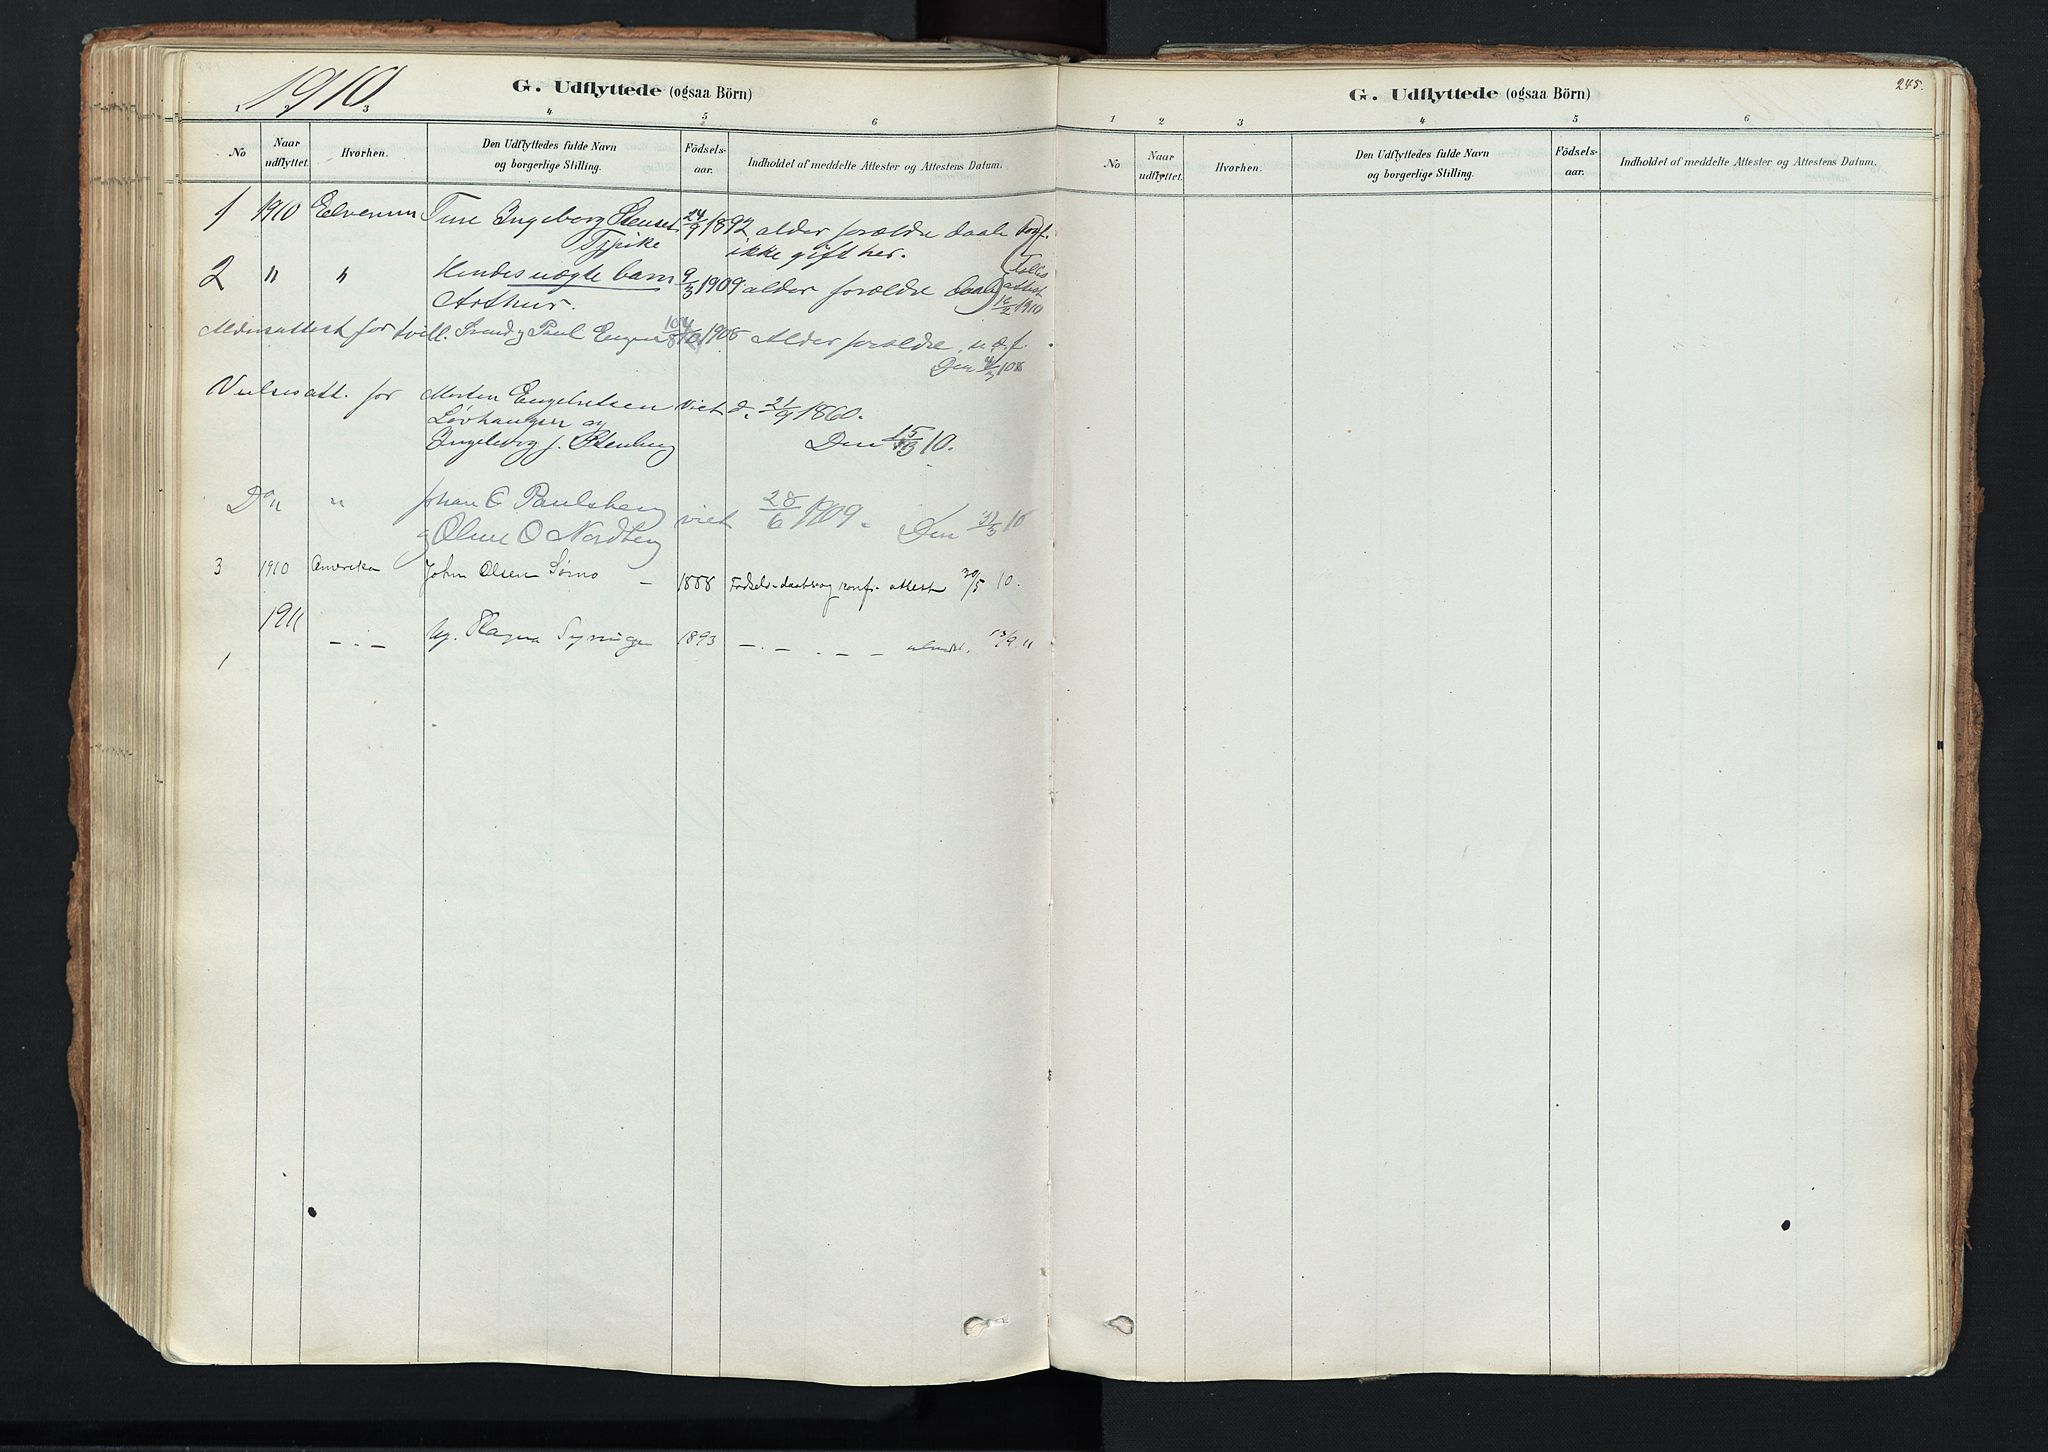 1910
G. Udflyttede (ogsaa Börn)
1 2 3 4 5 6
No Naar udflyttet. Hvorhen. Den Udflyttedes fulde Navn og borgerlige Stilling. Födsels-aar. Indholdet af meddelte Attester og Attestens Datum.
1 1910 Elverum Tine Ingeborg 24/9 1892 alder forældre daab konf.
ikke gift her.
2 " " Hendes uægte barn 9/3 1909 alder forældre daab Fælles attest 16/2 1910
Arthur.
Aldersattest for tvill. Svend og Paul 1908 Alder forældre
Den
Vielsesatt. for Morten Engebretsen Viet d. 21/9 1860.
Løvhaugen og
Ingeborg J. Den 15/3 10.
Do " " Johan E Paulsberg
og Oline O Nordberg viet 28/6 1909. Den 31/3 10
3 1910 Amerika John Olsen Sørmo – 1888 Fødsels-daabs og konf.-attest 30/5 10.
1911
1 – . – 1893 – . – . – – 13/9 11
245.
G. Udflyttede (ogsaa Börn)
1 2 3 4 5 6
No Naar udflyttet. Hvorhen. Den Udflyttedes fulde Navn og borgerlige Stilling. Födsels-aar. Indholdet af meddelte Attester og Attestens Datum.